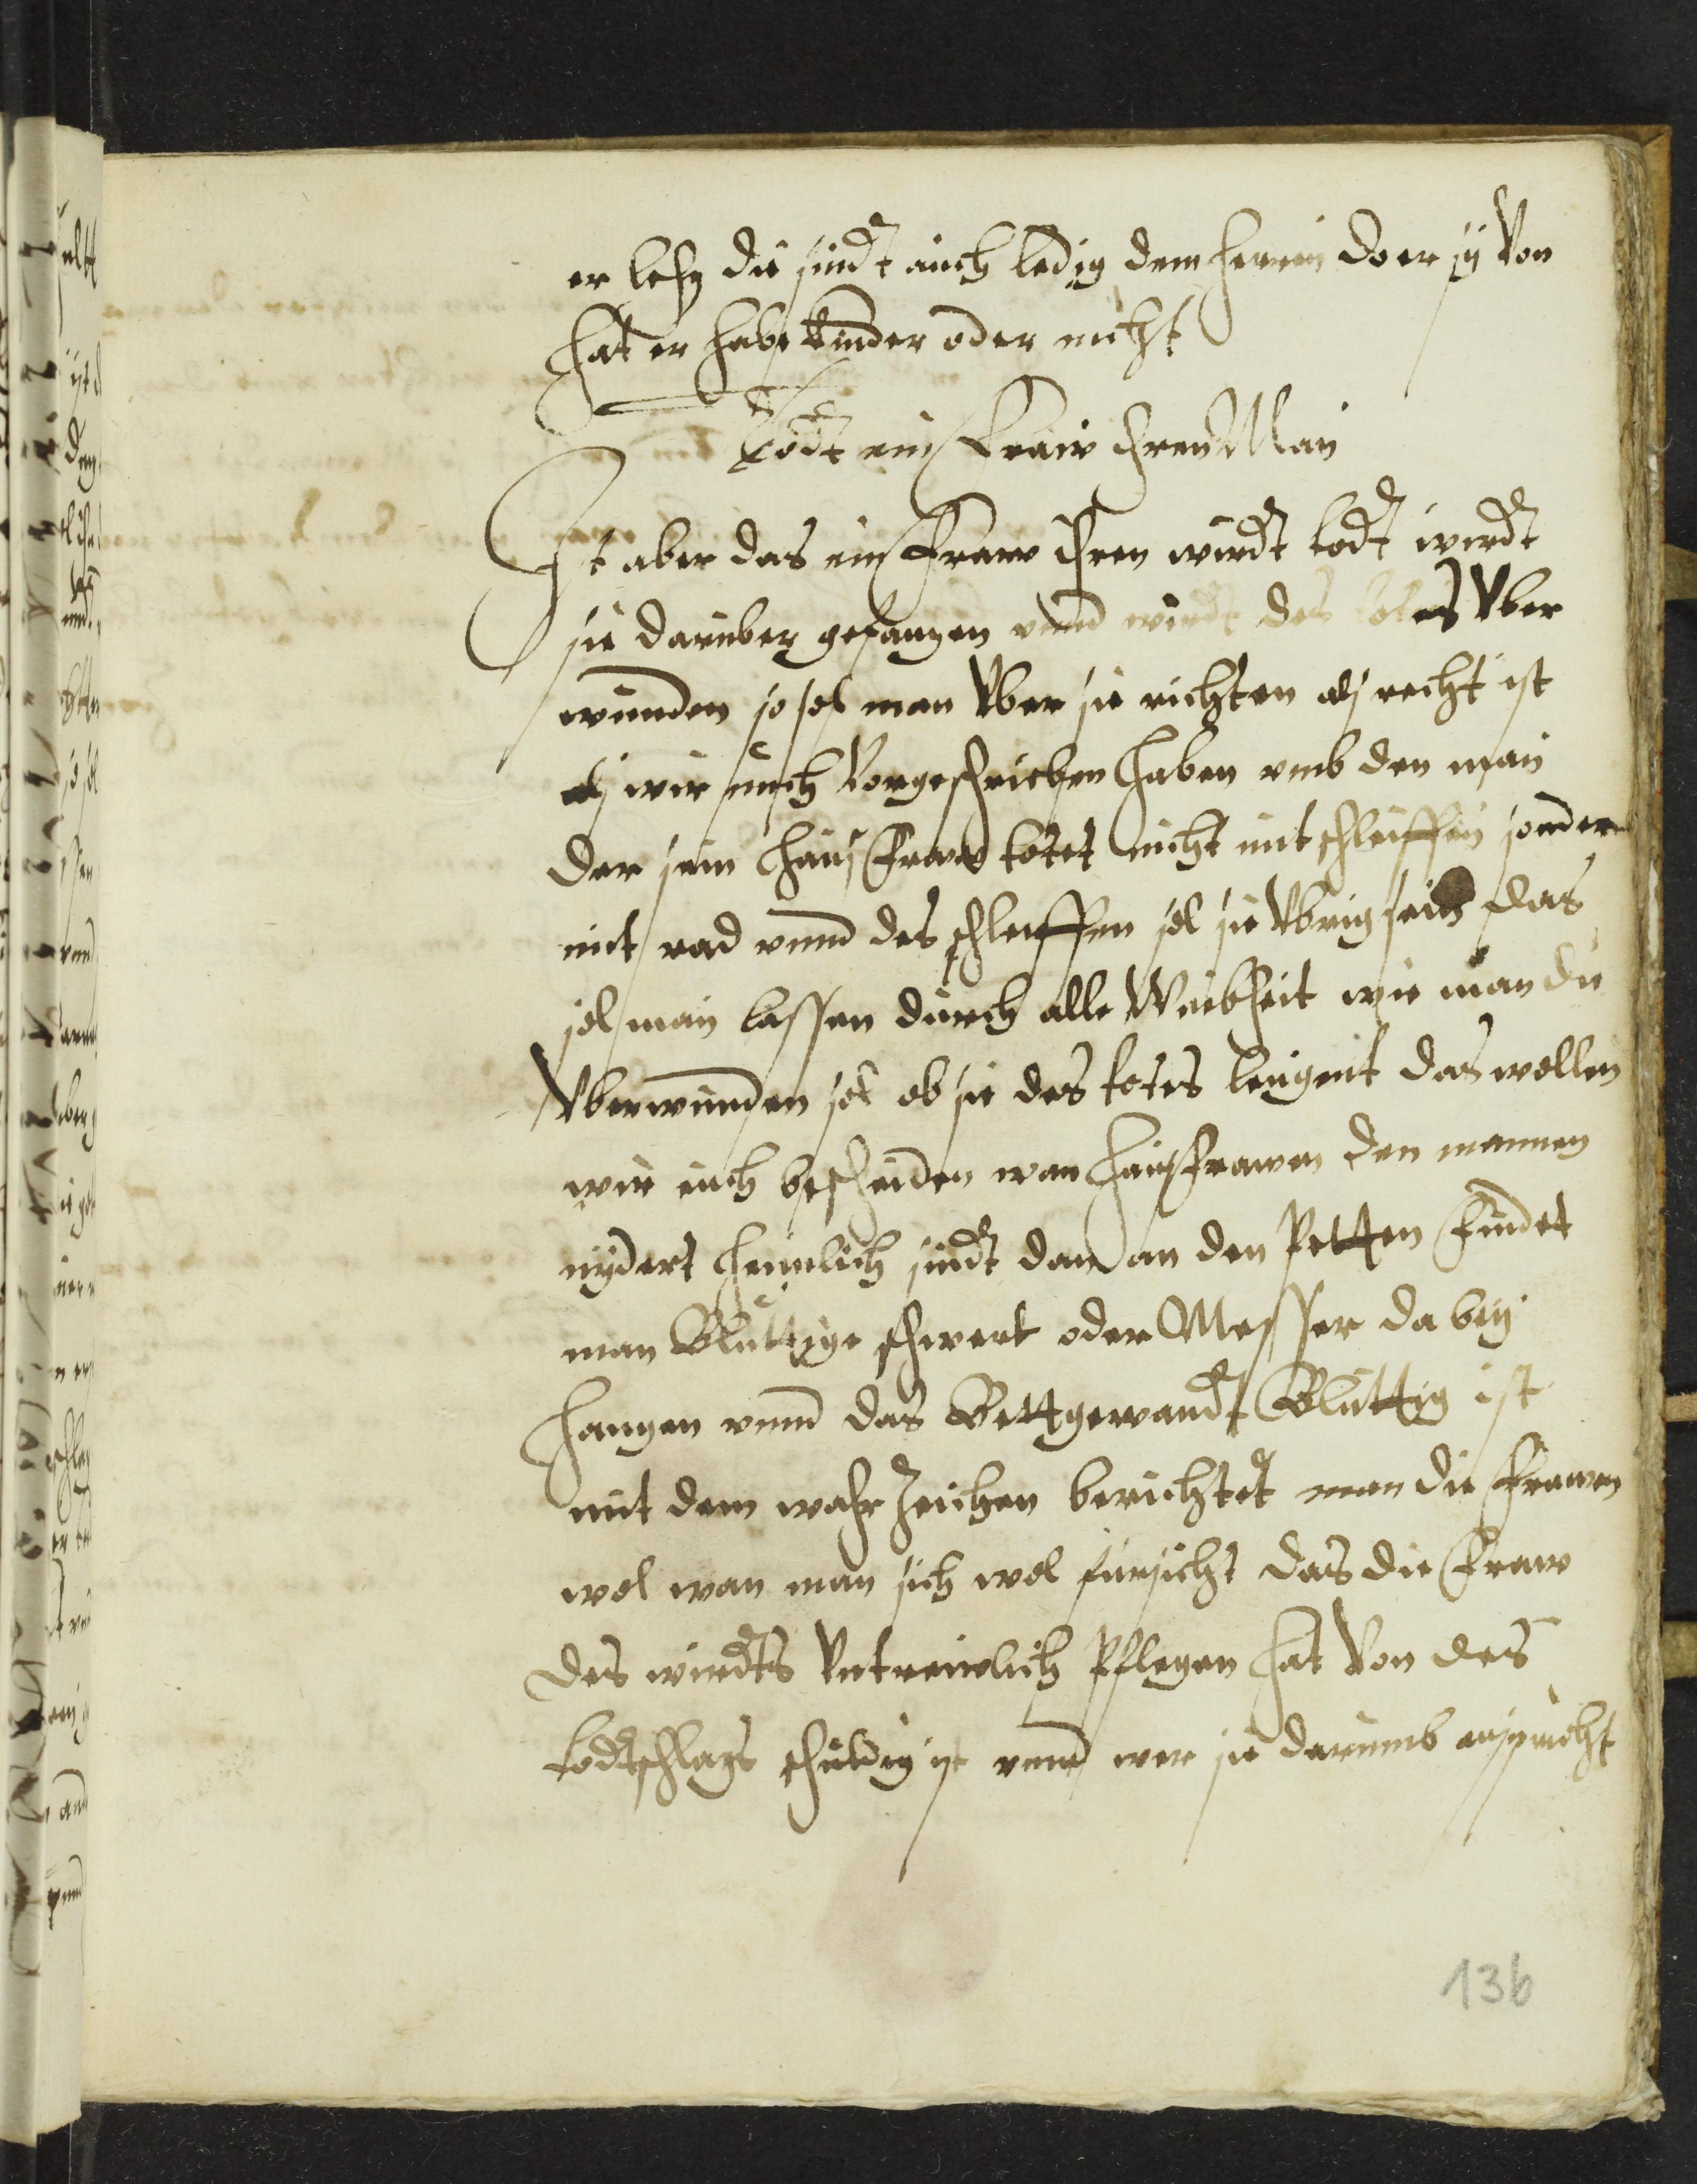 er lehen die sindt auch ledig dem herrn do er sy Von
hat er habe kinder oder nicht
Todt ein Fraw Iren Man
Ist aber das ein Fraw Iren wirdt todt wirdt
sie daruber gefangen vnnd wirdt des totes Vber
wunden so sol man Vber sie richten als recht ist
als wir euch Vorgeschrieben haben vmb den man
der sein hausfraw totet nicht mit schleiffen sonder
mit rad vnnd des schleiffen sol sie Vbrig sein das
sol man lassen durch alle Weibheit wie man die
Vberwunden sol ob sie des totes leugnet das wollen
wir euch bescheiden wan hausfrawen den mannen
nydert heimlich sindt dan an den Petten Findet
man Bluttige schwert oder Messer da bey
hangen vnnd das Bettgewandt Bluttig ist
mit dem wahrzeichen berichtet man die Frawen
wol wan man sich wol fursicht das die Fraw
des wirdts Vntreulich Pflegen hat Von des
todtschlags schuldig ist vnnd wer sie darumb anspricht
136